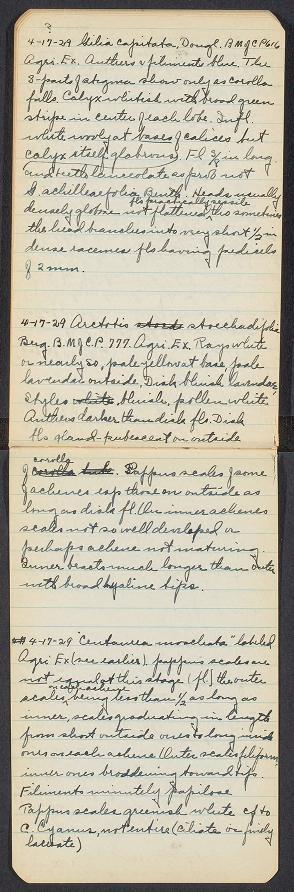 ?
4-17-29 Gilia capitata, Dougl. B M & C P 616
Agri. Ex. Anthers & filiments blue. The
3-parts of stigma show only as corolla
falls. Calyx whitish with broad green
stripe in center of each lobe. Infl.
white wooly at bases of calices but
calyx itself glabrous. Fl 3/8 in long.
and teeth lanceolate as prob not
G. achilleaefolia Benth. Heads usually
fls practically sessile
densely globose not flattened, tho sometimes
the head branches into very short 1/2 in
dense racemes fls having pedicels
of 2 mm.
4-17-29 Arctotis stoechadifolia
Berg. B. M & C. P 777. Agri. Ex. Rays white
or nearly so, pale yellow at base pale
lavendar outside, Disk bluish lavendar,
styles white bluish, pollen white
Anthers darker than disk fls. Disk
fls gland-pubescent on outside
corolla
of corolla tube. Pappus scales of some
of achenes esp those on outside as
long as disk fl. On inner achenes
scales not so well developed or
perhaps achene not maturing.
Inner bracts much longer than outer
with broad hyaline tips.
## 4-17-29 "Centaurea moschata" labeled
Agri Ex (see earlier). pappus scales are
not equal at this stage (fl) the outer
on each achene
scales being less than 1/2 as long as
inner, scales graduating in length
from short outside ones to long inside
ones on each achene (Outer scales filiform,
inner ones broadening toward tips
Filiments minutely papilose
Pappus scales greenish white cf to
C. Cyanus, not entire (ciliate or finely
lacerate)